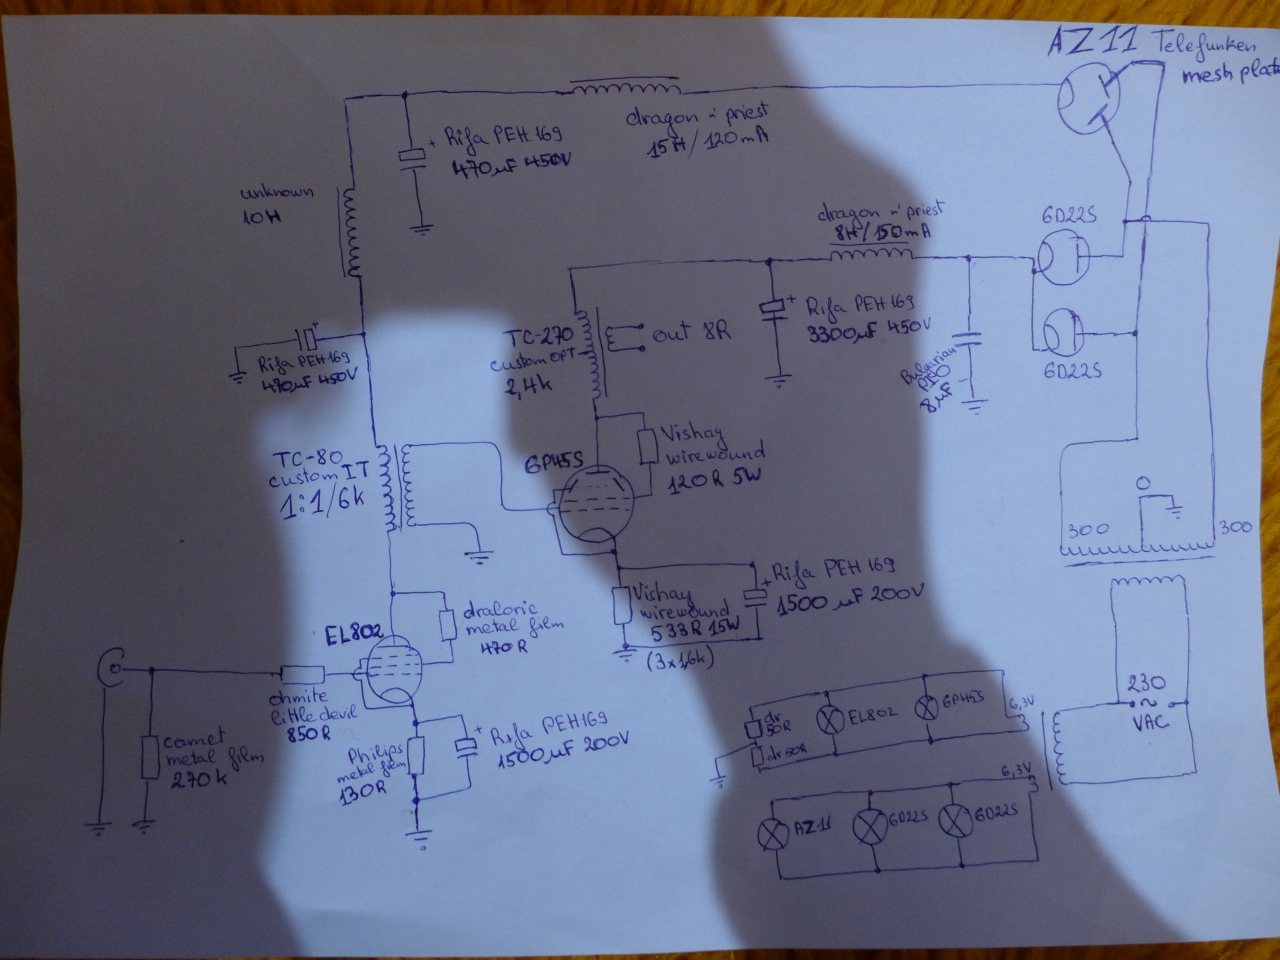 AZ11 Telefunken
mesh plate
Rifa PEH 169
470µF 450V
dragon n' priest
15H/120mA
unknown
10H
dragon n' priest
8H/150mA
6D22S
6D22S
Rifa PEH 169
470µF 450V
TC-270
custom OPT
2,4k
out 8R
Rifa PEH 169
3300µF 450V
Bulgarian
PIO
8µF
TC-80
custom IT
1:1/6k
6P45S
Vishay
wirewound
120R 5W
0
300
300
Rifa PEH 169
1500µF 200V
Vishay
wirewound
533R 15W
(3x1,6k)
EL802
draloric
metal film
470R
ohmite
little devil
850R
comet
metal film
270k
Philips
metal film
130R
Rifa PEH169
1500µF 200V
230
~
VAC
dr
50R
dr 50R
EL802
6P45S
6,3V
6,3V
AZ-11
6D22S
6D22S